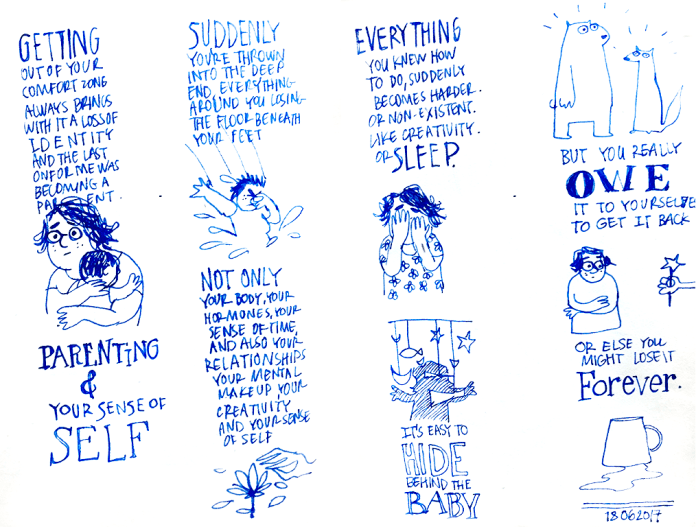 GETTING
OUT OF YOUR
COMFORT ZONE
ALWAYS BRINGS
WITH IT A LOSS OF
IDENTITY
AND THE LAST
ON FOR ME WAS
BECOMING A
PARENT.
PARENTING
&
YOUR SENSE OF
SELF
SUDDENLY
YOU'RE THROWN
INTO THE DEEP
END. EVERYTHING
AROUND YOU LOSING
THE FLOOR BENEATH
YOUR FEET
NOT ONLY
YOUR BODY, YOUR
HORMONES, YOUR
SENSE OF TIME,
AND ALSO YOUR
RELATIONSHIPS
YOUR MENTAL
MAKEUP, YOUR
CREATIVITY
AND YOUR SENSE
OF SELF
EVERYTHING
YOU KNEW HOW
TO DO, SUDDENLY
BECOMES HARDER.
OR NON-EXISTENT.
LIKE CREATIVITY.
OR SLEEP.
IT'S EASY TO
HIDE
BEHIND THE
BABY
BUT YOU REALLY
OWE
IT TO YOURSELF
TO GET IT BACK
OR ELSE YOU
MIGHT LOSE IT
Forever.
18062017